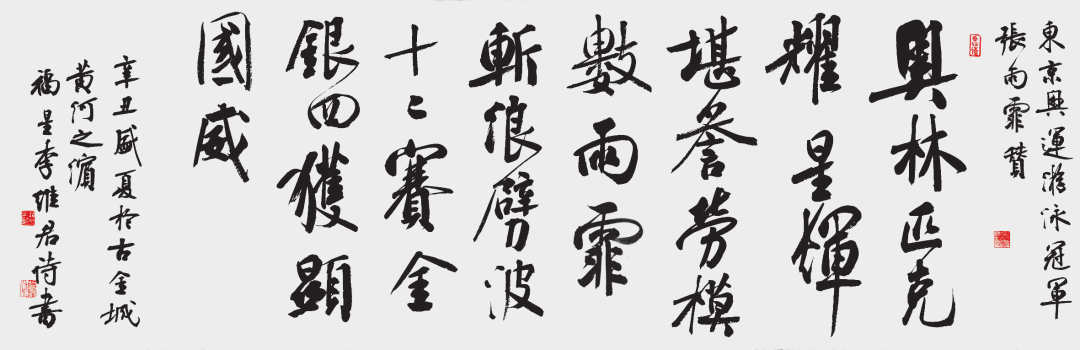 東京奥運游泳冠軍
張雨霏贊
奥林匹克
耀星輝
堪誉勞模
數雨霏
斬浪劈波
十二賽金
銀四獲顯
國威
辛丑盛夏於古金城
黄河之濱
福星李維君詩書